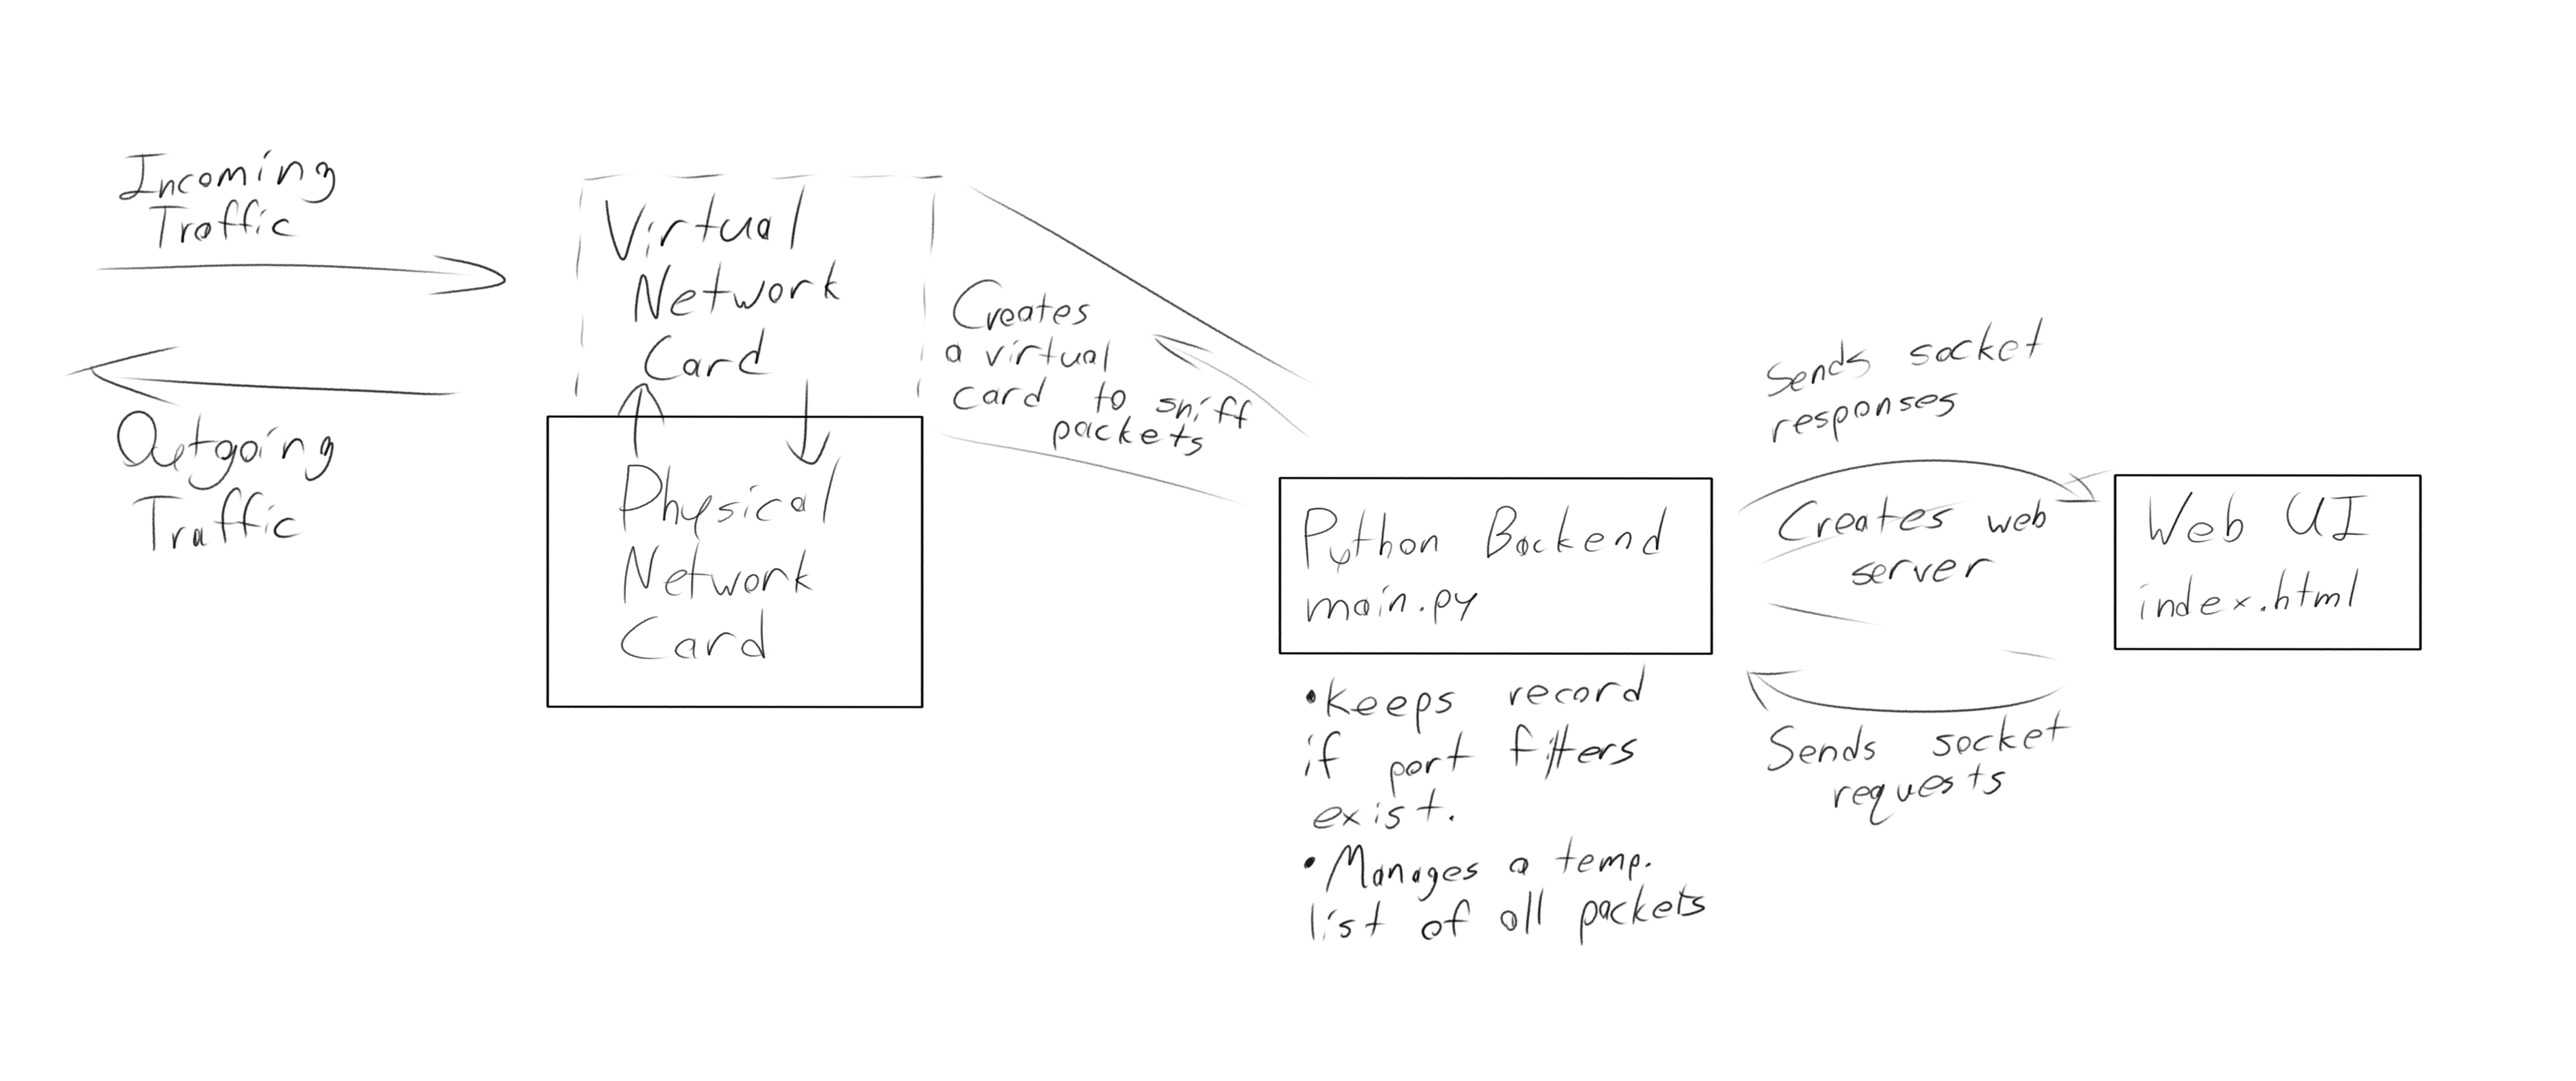 Incoming
Traffic
Outgoing
Traffic
Virtual
Network
Card
Physical
Network
Card
Creates
a virtual
card to sniff
packets
Python Backend
main.py
•Keeps record
if port filters
exist.
•Manages a temp.
list of all packets
Sends socket
responses
Creates web
server
Sends socket
requests
Web UI
index.html